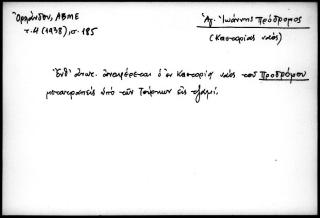 Ὀρλάνδου, ΑΒΜΕ
τ. Δ (1938), σ. 185
Ἁγ. Ἰωάννης Πρόδρομος
(Καστοριᾶς ναός)
Ἔνθ' ἀνωτ. ἀναφέρεται ὁ ἐν Καστοριᾷ ναὸς τοῦ Προδρόμου
μετατραπεὶς ὑπὸ τῶν Τούρκων εἰς τζαμί.